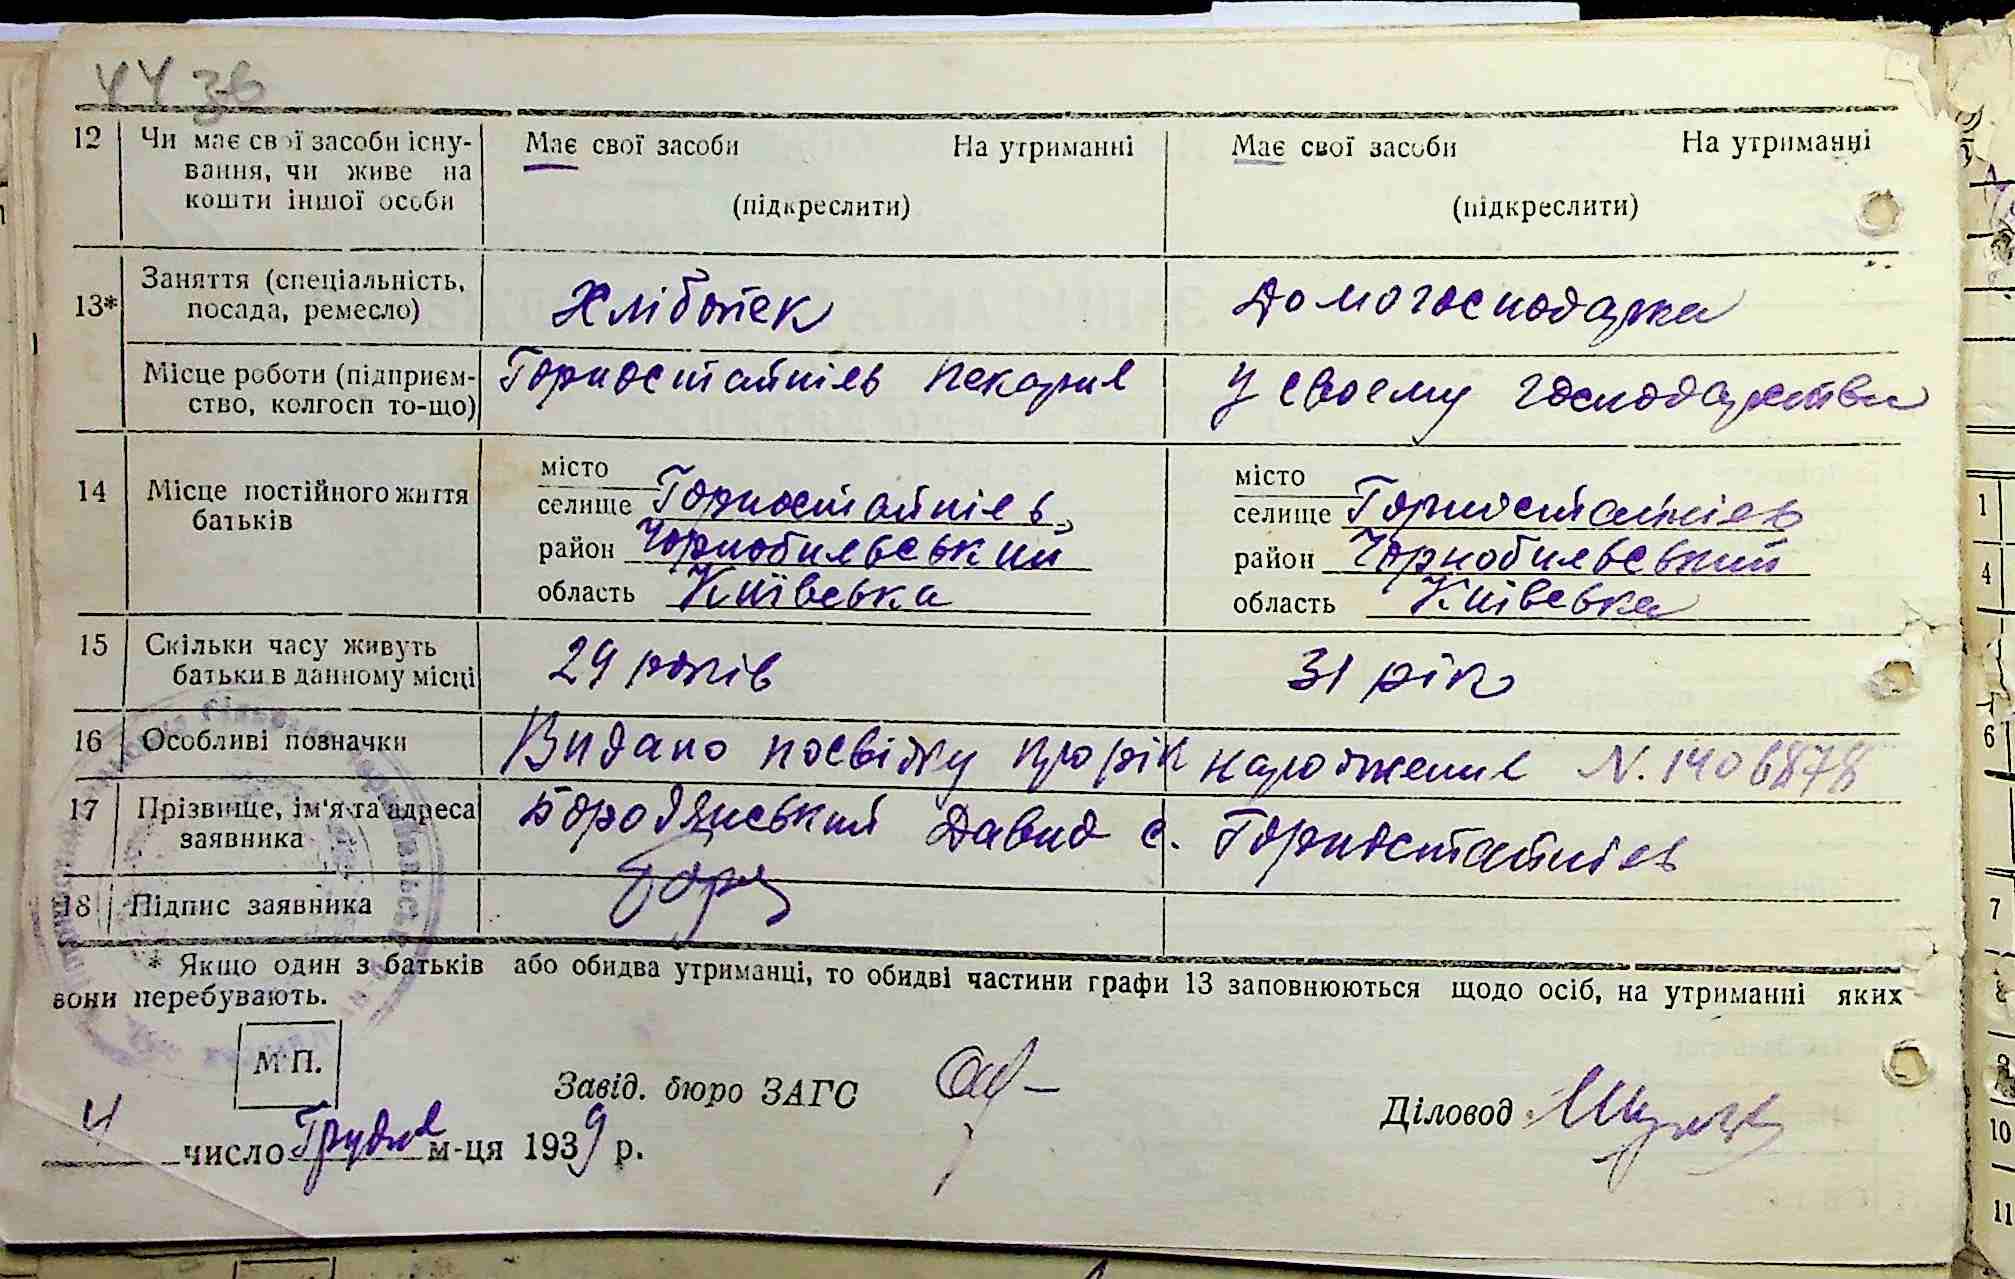 44 зв
12 Чи має свої засоби існу-
вання, чи живе на
кошти іншої особи
Має свої засоби На утриманні
(підкреслити)
Має свої засоби На утриманні
(підкреслити)
13* Заняття (спеціальність,
посада, ремесло)
Хлібопек
Домогосподарка
Місце роботи (підприєм-
ство, колгосп то-що)
Горностайпіль пекарня
У своєму господарстви
14 Місце постійного життя
батьків
місто
селище Горностайпіль,
район Чорнобильський
область Київська
місто
селище Горностайпіль
район Чорнобильський
область Київська
15 Скільки часу живуть
батьки в данному місці
29 років
31 рік
16 Особливі позначки
Видано посвідку про рік народження N. 1406878
17 Прізвище, ім'я та адреса
заявника
Бородянський Давид с. Горностайпіль
18 Підпис заявника
* Якщо один з батьків або обидва утриманці, то обидві частини графи 13 заповнюються щодо осіб, на утриманні яких
вони перебувають.
М П.
Завід. бюро ЗАГС
Діловод
4 число Грудня м-ця 1939 р.
1
4
6
7
8
9
10
11